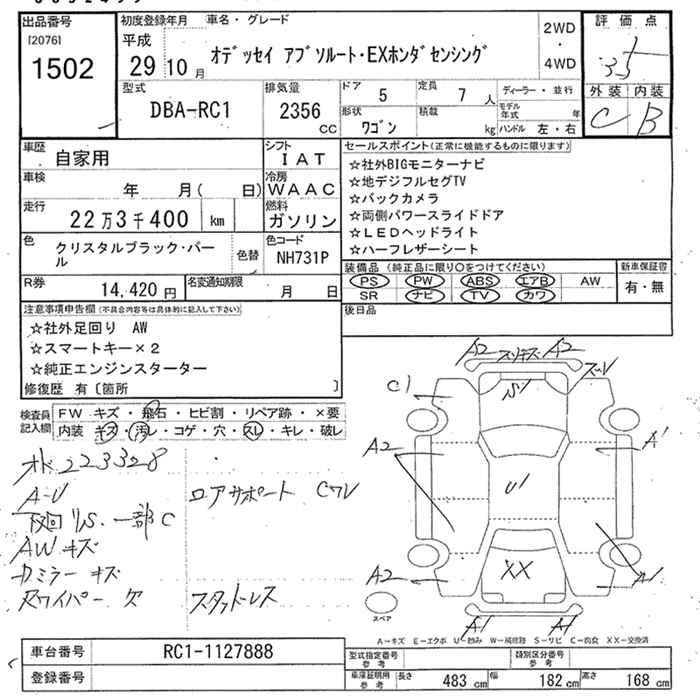 出品番号
[2076]
1502
初度登録年月
車名・グレード
平成
29 10 月
オデッセイ アブソルート・EXホンダセンシング
2WD
・
4WD
評価点
3.5
外装 内装
C B
型式
DBA-RC1
排気量
2356
cc
ドア
5
定員
7 人
形状
ワゴン
積載
kg
ディーラー・並行
モデル年式 年
ハンドル 左・右
車歴
自家用
シフト
IAT
車検
年 月( 日)
冷房
WAAC
走行
22万3千400 km
燃料
ガソリン
色
クリスタルブラック・パール
色替
色コード
NH731P
R券
14,420 円
名変通知期限
月 日
セールスポイント(正常に機能するものに限ります)
☆社外BIGモニターナビ
☆地デジフルセグTV
☆バックカメラ
☆両側パワースライドドア
☆LEDヘッドライト
☆ハーフレザーシート
装備品(純正品に限り○をつけてください)
PS PW ABS エアB AW
SR ナビ TV カワ
新車保証書
有・無
後日品
注意事項申告欄(不具合内容等は具体的に記入して下さい)
☆社外足回り AW
☆スマートキー×2
☆純正エンジンスターター
修復歴 有〔箇所 〕
検査員記入欄
FW キズ・飛石・ヒビ割・リペア跡・×要
内装 キズ・汚レ・コゲ・穴・スレ・キレ・破レ
223328
A-U
一部C
AWキズ
カミラーキズ
Rワイパー欠
ロアサポート Cワレ
スタッドレス
A2 スリキズ A2
C1
A2
U1
A1
XX
A2
A1
A1 A1
スペア
A－キズ E－エクボ U－凹み W－補修跡 S－サビ C－腐食 XX－交換済
車台番号
RC1-1127888
登録番号
型式指定番号
参考
類別区分番号
参考
車庫証明用
参考
長さ 483 cm
幅 182 cm
高さ 168 cm